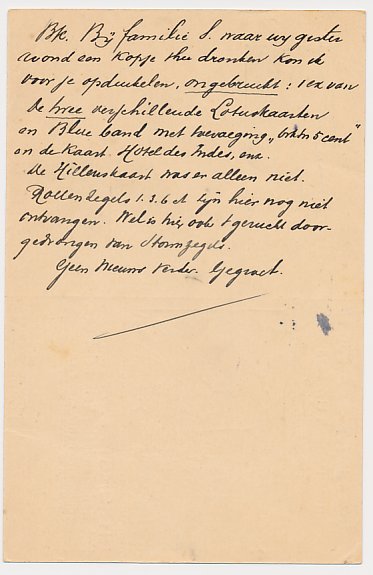 Bk. Bij familie S. waar wij gister
avond een kopje thee dronken kon ik
voor je opduikelen, ongebruikt: 1 ex van
de twee verschillende Lotuskaarten
en Blue Band met toevoeging "5 cent"
en de kaart Hotel des Indes, enz.
De Hillenskaart was er alleen niet.
Rollenzegels 1. 3. 6 ct zijn hier nog niet
ontvangen. Wel is hier ook 't gerucht door-
gedrongen van Stormzegels.
Geen nieuws verder. Gegroet.